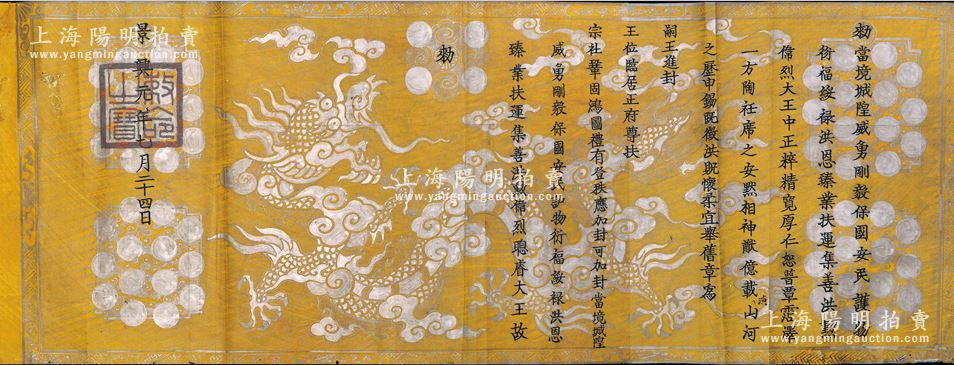 勑當境城隍威勇剛毅保國安民護物
衍福綏祿洪恩臻業扶運集善洪勳
偉烈大王中正粹精寬厚仁恕普覃霑澤
一方陶衽席之安黙相神猷億載山河
之歷申錫既徵洪貺懷柔宜舉舊章爲
嗣王進封
王位臨居正府尊扶
宗社鞏固鴻圖禮有登秩應加封可加封當境城隍
威勇剛毅保國安民護物衍福綏祿洪恩
臻業扶運集善洪勳偉烈聰睿大王故
勑
景興年七月二十四日
敕命之寶
上海陽明拍賣
www.yangmingauction.com
上海陽明拍賣
www.yangmingauction.com
上海陽明拍賣
www.yangmingauction.com
上海陽明拍賣
www.yangmingauction.com
上海陽明拍賣
www.yangmingauction.com